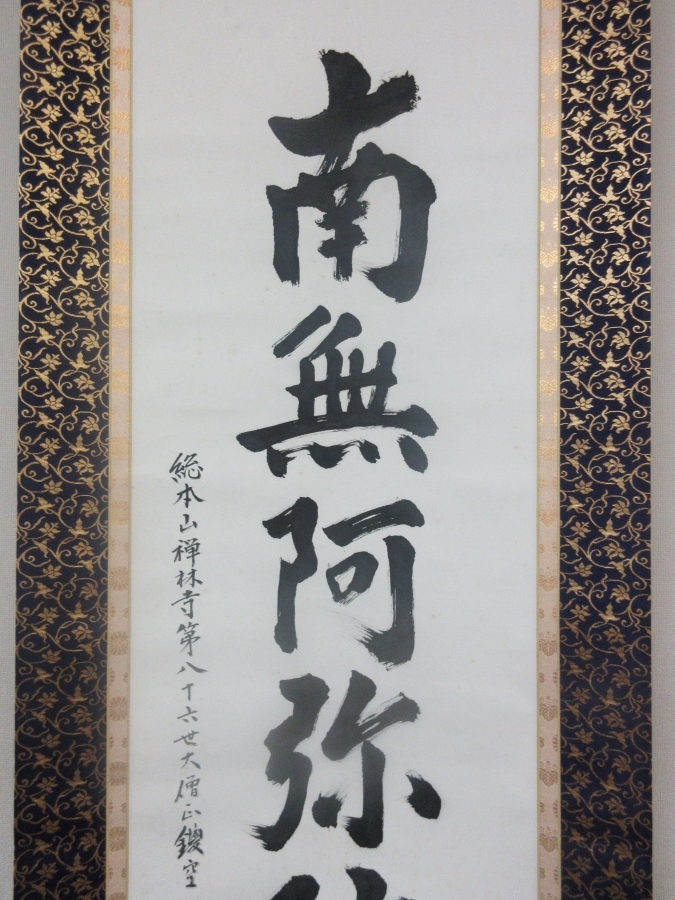 南無阿弥
総本山禅林寺第八十六世大僧正鑁空